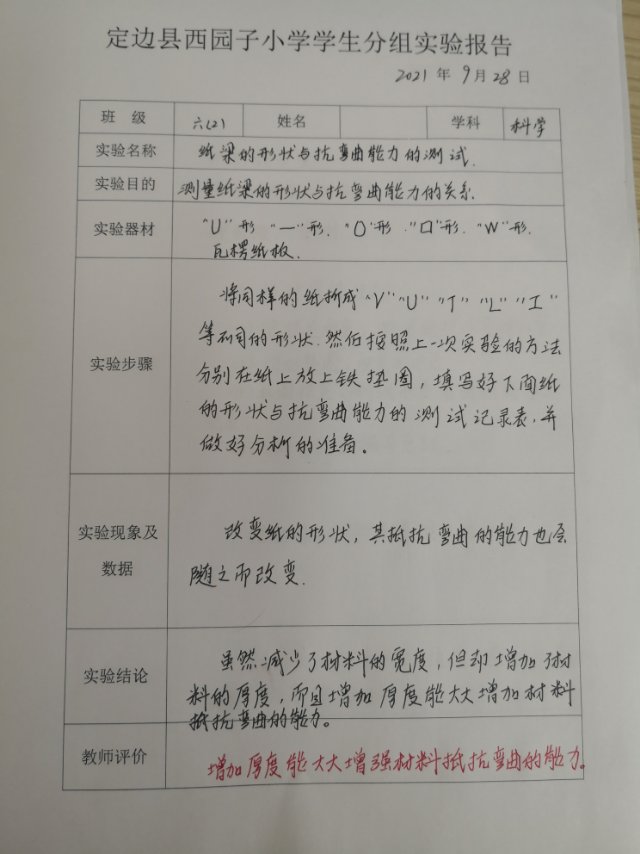 定边县西园子小学学生分组实验报告
2021 年 9 月 28 日
班 级 六(2) 姓名 学科 科学
实验名称 纸梁的形状与抗弯曲能力的测试.
实验目的 测量纸梁的形状与抗弯曲能力的关系.
实验器材 "U"形 "一"形. "O"形."口"形. "W"形.
瓦楞纸板.
将同样的纸折成"V""U""T""L""工"
等不同的形状.然后按照上一次实验的方法
实验步骤 分别在纸上放上铁垫圈，填写好下面纸
的形状与抗弯曲能力的测试记录表，并
做好分析的准备。
实验现象及 改变纸的形状，其抵抗弯曲的能力也会
数据 随之而改变.
虽然减少了材料的宽度，但却增加了材
实验结论 料的厚度，而且增加厚度能大大增加材料
抵抗弯曲的能力。
教师评价 增加厚度能大大增强材料抵抗弯曲的能力。